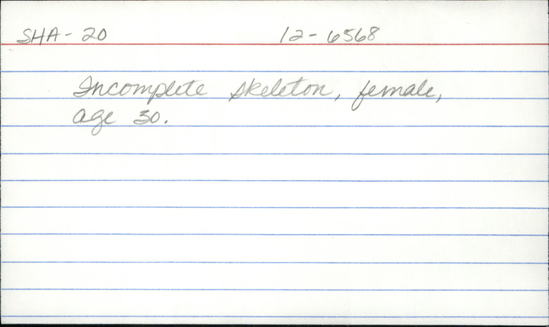 SHA-20 12-6568
Incomplete skeleton, female,
age 30.